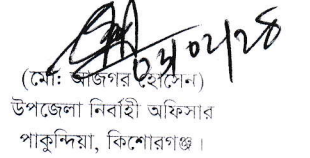 ০৮/০২/২৪
(মোঃ আজগর হোসেন)
উপজেলা নির্বাহী অফিসার
পাকুন্দিয়া, কিশোরগঞ্জ।